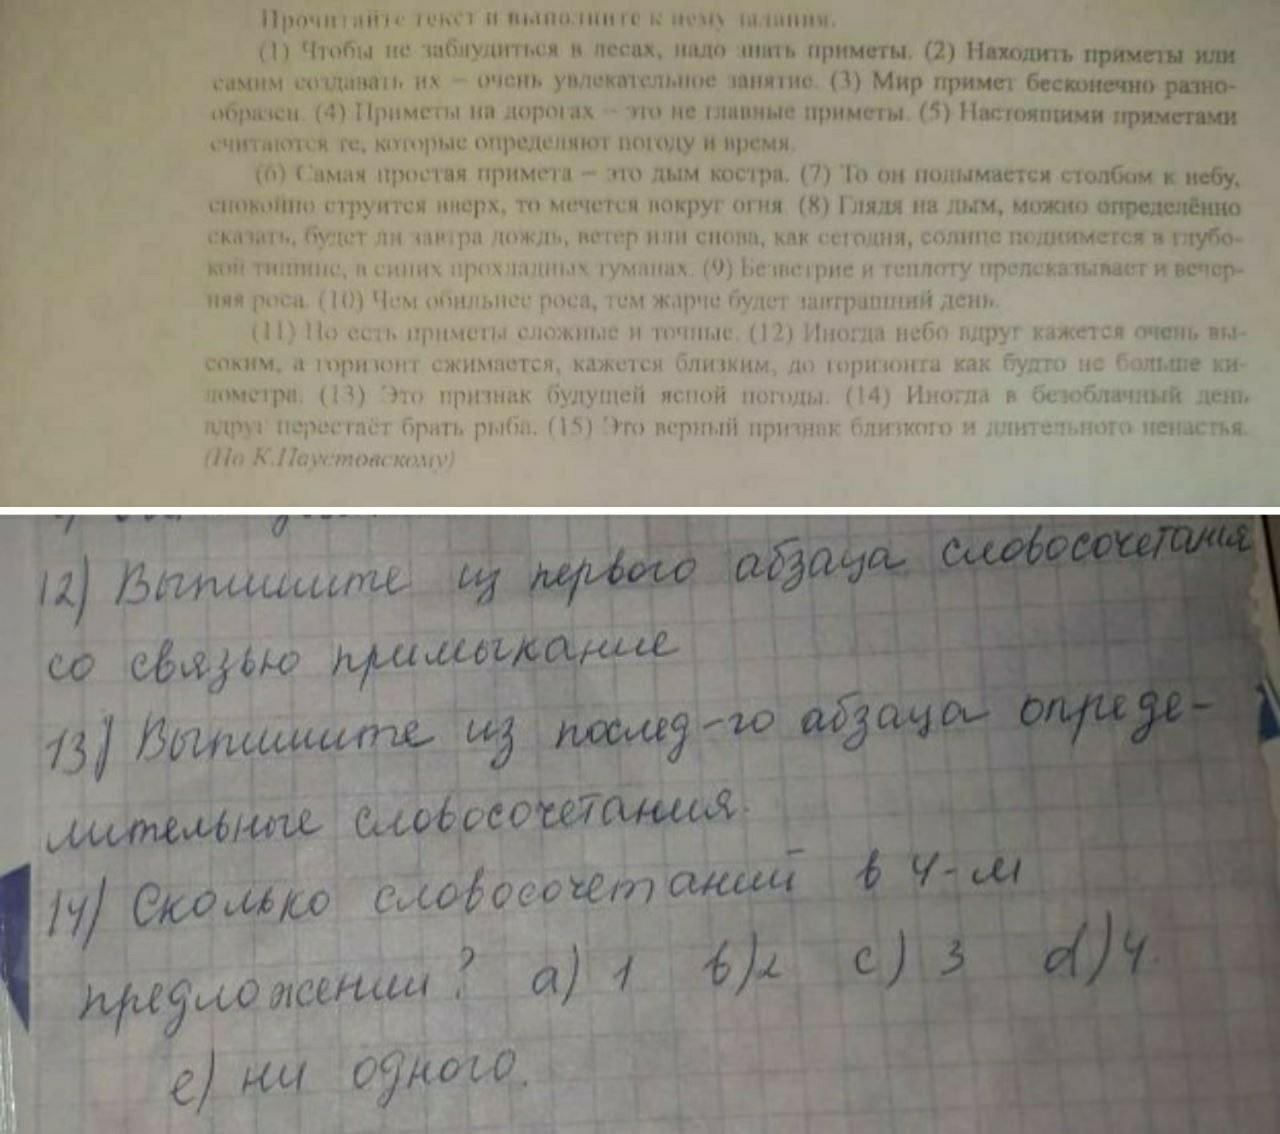 Прочитайте текст и выполните к нему задания.
(1) Чтобы не заблудиться в лесах, надо знать приметы. (2) Находить приметы или
самим создавать их – очень увлекательное занятие. (3) Мир примет бесконечно разно-
образен. (4) Приметы на дорогах – это не главные приметы. (5) Настоящими приметами
считаются те, которые определяют погоду и время.
(6) Самая простая примета – это дым костра. (7) То он подымается столбом к небу,
спокойно струится вверх, то мечется вокруг огня. (8) Глядя на дым, можно определённо
сказать, будет ли завтра дождь, ветер или снова, как сегодня, солнце поднимется в глубо-
кой тишине, в синих прохладных туманах. (9) Безветрие и теплоту предсказывает и вечер-
няя роса. (10) Чем обильнее роса, тем жарче будет завтрашний день.
(11) Но есть приметы сложные и точные. (12) Иногда небо вдруг кажется очень вы-
соким, а горизонт сжимается, кажется близким, до горизонта как будто не больше ки-
лометра. (13) Это признак будущей ясной погоды. (14) Иногда в безоблачный день
вдруг перестаёт брать рыба. (15) Это верный признак близкого и длительного ненастья.
(По К.Паустовскому)
12) Выпишите из первого абзаца словосочетания
со связью примыкание
13) Выпишите из послед-го абзаца опреде-
лительные словосочетания.
14) Сколько словосочетаний в 4-м
предложении? a) 1 b) 2 c) 3 d) 4.
e) ни одного.